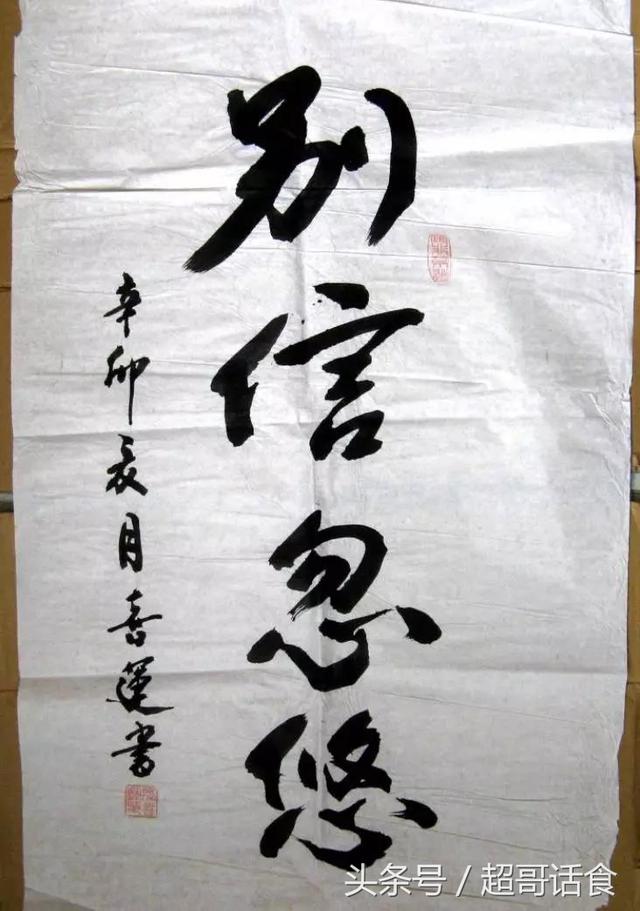 别信忽悠
辛卯辰月喜莲书
头条号 / 超哥话食